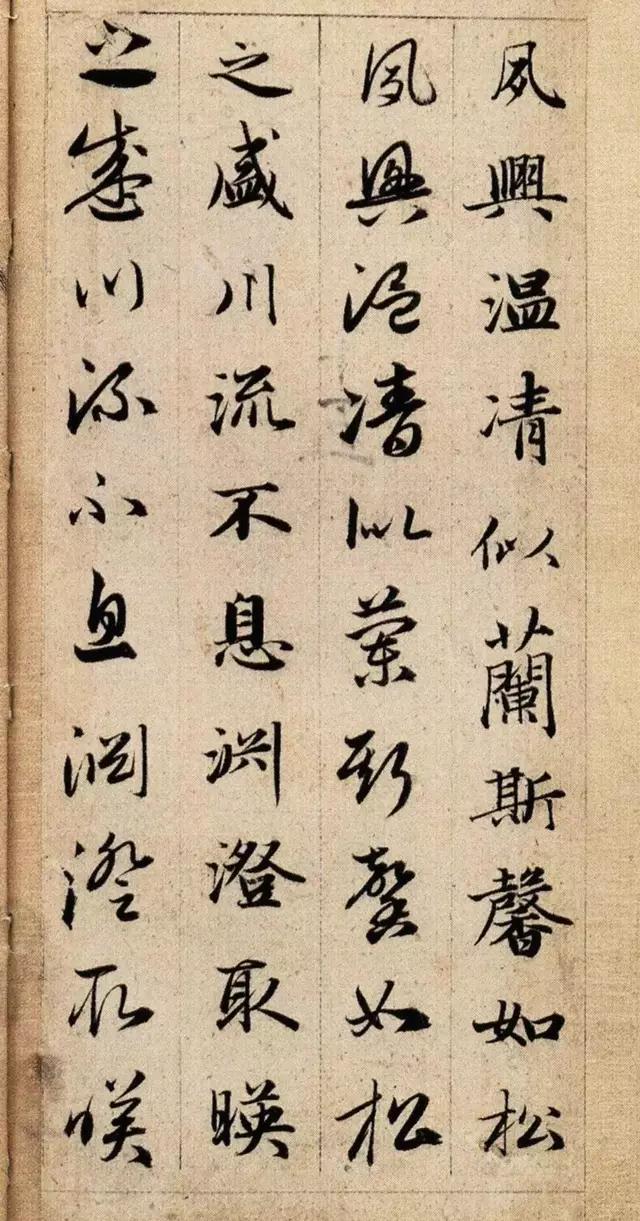 夙興温凊似蘭斯馨如松
夙興温凊似蘭斯馨如松
之盛川流不息淵澄取暎
之盛川流不息淵澄取暎